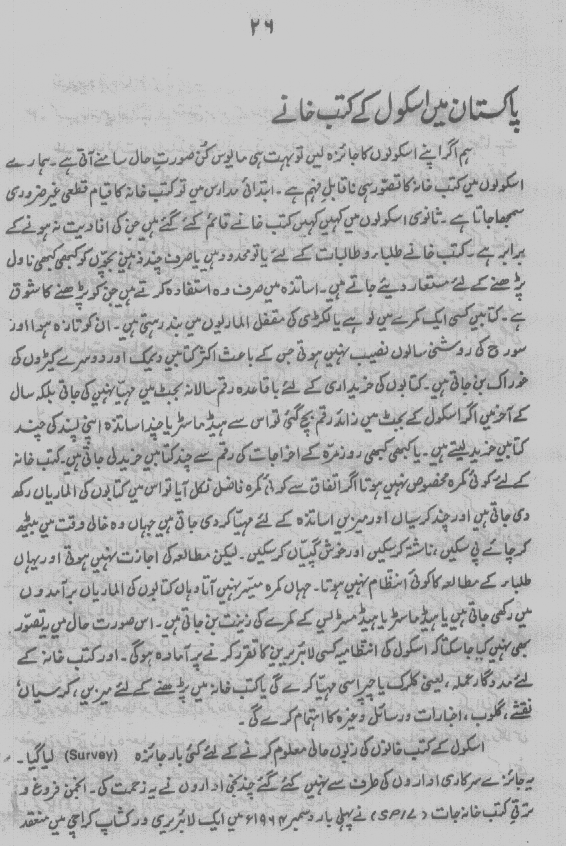 ۲۶
پاکستان میں اسکول کے کتب خانے
ہم اگر اپنے اسکولوں کا جائزہ لیں تو بہت ہی مایوس کُن صورتِ حال سامنے آتی ہے۔ ہمارے
اسکولوں میں کتب خانہ کا تصوّر ہی ناقابلِ فہم ہے۔ ابتدائی مدارس میں تو کتب خانہ کا قیام قطعی غیر ضروری
سمجھا جاتا ہے۔ ثانوی اسکولوں میں کہیں کہیں کتب خانے قائم کئے گئے ہیں جن کی افادیت نہ ہونے کے
برابر ہے۔ کتب خانے طلباء و طالبات کے لئے یا تو محدود ہیں یا صرف چند ذہین بچّوں کو کبھی کبھی ناول
پڑھنے کے لئے مستعار دیئے جاتے ہیں۔ اساتذہ میں صرف وہ استفادہ کرتے ہیں جن کو پڑھنے کا شوق
ہے۔ کتابیں کسی ایک کمرے میں لوہے یا لکڑی کی مقفل الماریوں میں بند رہتی ہیں۔ ان کو تازہ ہوا اور
سورج کی روشنی سالوں نصیب نہیں ہوتی جس کے باعث اکثر کتابیں دیمک اور دوسرے کیڑوں کی
خوراک بن جاتی ہیں۔ کتابوں کی خریداری کے لئے باقاعدہ رقم سالانہ بجٹ میں مہیّا نہیں کی جاتی بلکہ سال
کے آخر میں اگر اسکول کے بجٹ میں زائد رقم بچ گئی تو اس سے ہیڈ ماسٹر یا چند اساتذہ اپنی پسند کی چند
کتابیں خرید لیتے ہیں۔ یا کبھی کبھی روزمرّہ کے اخراجات کی رقم سے چند کتابیں خرید لی جاتی ہیں۔ کتب خانہ
کے لئے کوئی کمرہ مخصوص نہیں ہوتا اگر اتفاق سے کوئی کمرہ فاضل نکل آیا تو اس میں کتابوں کی الماریاں رکھ
دی جاتی ہیں اور چند کرسیاں اور میزیں اساتذہ کے لئے مہیّا کر دی جاتی ہیں جہاں وہ خالی وقت میں بیٹھ
کر چائے پی سکیں، ناشتہ کر سکیں اور خوش گپیّاں کر سکیں۔ لیکن مطالعہ کی اجازت نہیں ہوتی اور یہاں
طلباء کے مطالعہ کا کوئی انتظام نہیں ہوتا۔ جہاں کمرہ میسّر نہیں آتا وہاں کتابوں کی الماریاں برآمدوں
میں رکھی جاتی ہیں یا ہیڈ ماسٹر یا ہیڈ مسٹریس کے کمرے کی زینت بن جاتی ہیں۔ اس صورت حال میں یہ تصوّر
بھی نہیں کیا جا سکتا کہ اسکول کی انتظامیہ کسی لائبریرین کا تقرر کرنے پر آمادہ ہوگی۔ اور کتب خانہ کے
لئے مددگار عملہ، یعنی کلرک یا چپراسی مہیّا کرے گی یا کتب خانہ میں پڑھنے کے لئے میزیں، کرسیاں
نقشے، گلوب، اخبارات و رسائل وغیرہ کا اہتمام کرے گی۔
اسکول کے کتب خانوں کی زبوں حالی معلوم کرنے کے لئے کئی بار جائزہ (Survey) لیا گیا۔
یہ جائزے سرکاری اداروں کی طرف سے نہیں کئے گئے چند نجی اداروں نے یہ زحمت کی۔ انجمن فروغ و
ترقی کتب خانہ جات (SPIL) نے پہلی بار دسمبر ۱۹۶۴ء میں ایک لائبریری ورکشاپ کراچی میں منعقد